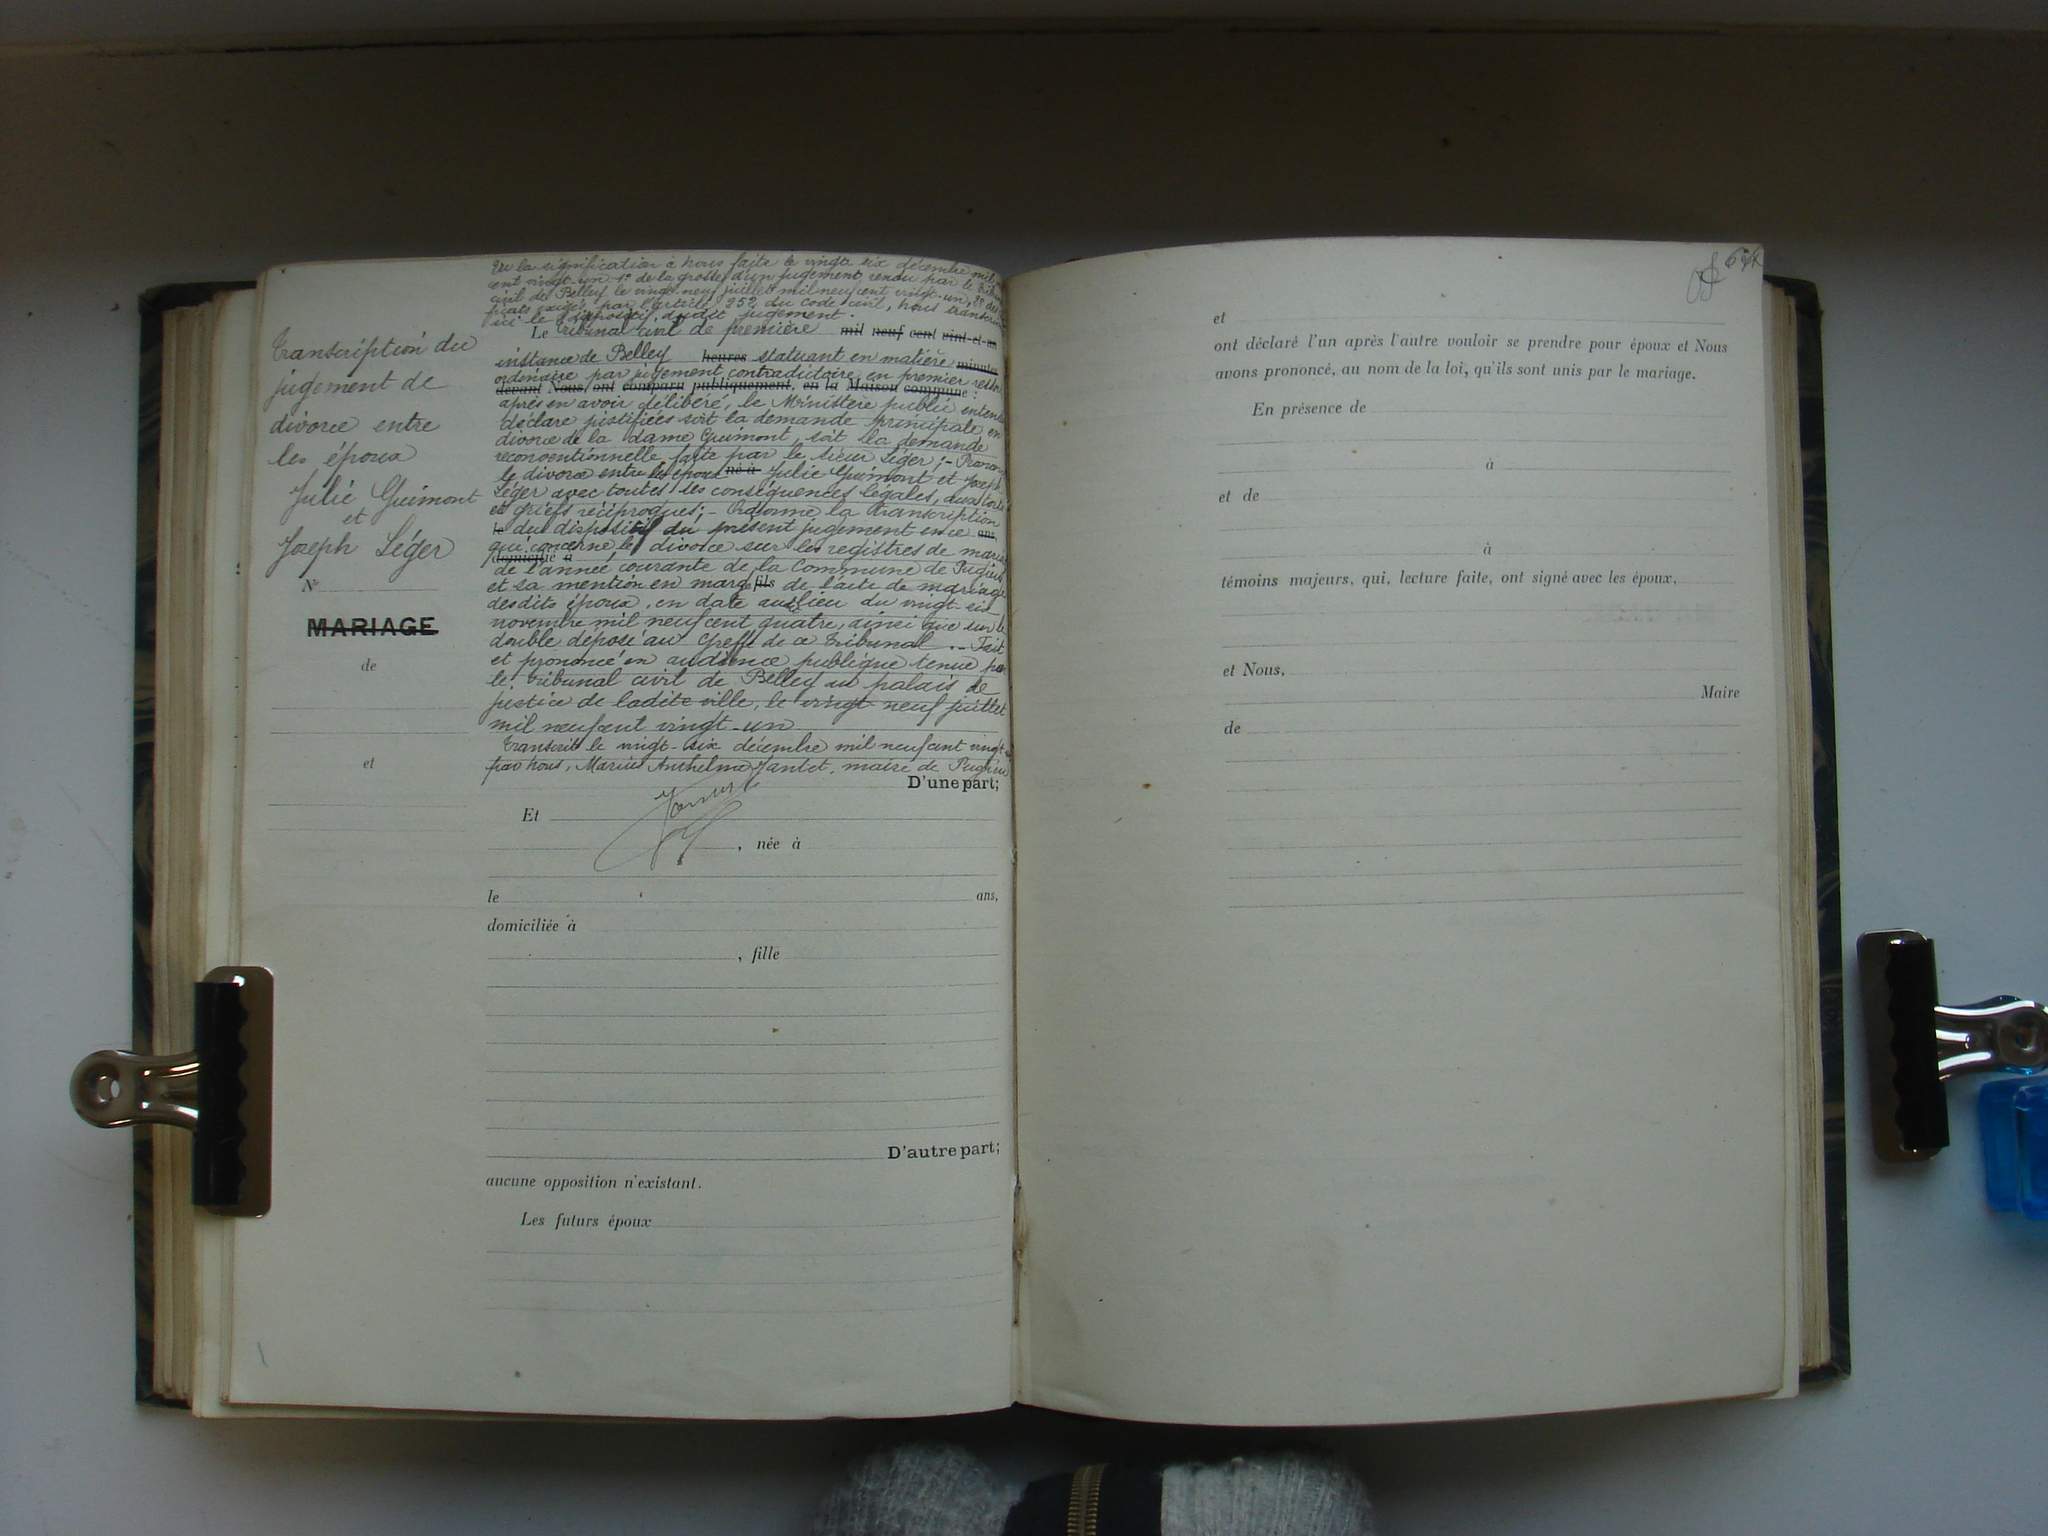 Transcription du
jugement de
divorce entre
les époux
Julie Guimont
et
Joseph Léger
N°
MARIAGE
de
et
Vu la signification à nous faite le vingt six décembre mil
cent vingt un 1° de la grosse d'un jugement rendu par le Tribu
civil de Belley le vingt-neuf juillet mil neuf cent vingt-un, 2° des
exigés par l'article 252 du code civil, nous transcriv
ici le dispositif dudit jugement.
Le Tribunal civil de première mil neuf cent vint-et-un
instance de Belley heures statuant en matière minutes
ordinaire par jugement contradictoire en premier ressor
devant Nous ont comparu publiquement, en la Maison commune :
après en avoir délibéré, le Ministère public entendu
déclare justifiées soit la demande principale en
divorce de la dame Guimont, soit la demande
reconventionnelle faite par le sieur Léger ;- Prononce
le divorce entre les époux né à Julie Guimont et Joseph
Léger avec toutes ses conséquences légales, aux torts
et griefs réciproques ;- Ordonne la transcription
le du dispositif du présent jugement en ce ans,
qui concerne le divorce sur les registres de mariage
domicilié à
de l'année courante de la Commune de Pugieu
et sa mention en marge fils de l'acte de mariage
desdits époux, en date audit lieu du vingt-six
novembre mil neuf cent quatre, ainsi que sur le
double déposé au Greffe de ce Tribunal .- Fait
et prononcé en audience publique tenue par
le Tribunal civil de Belley au palais de
justice de ladite ville, le vingt neuf juillet
mil neuf cent vingt-un
Transcrit le vingt-six décembre mil neuf cent vingt-
par nous, Marius Anthelme Jantet, maire de Pugieu
D'une part;
Et
, née à
le ans,
domiciliée à
, fille
D'autre part;
aucune opposition n'existant.
Les futurs époux
et
ont déclaré l'un après l'autre vouloir se prendre pour époux et Nous
avons prononcé, au nom de la loi, qu'ils sont unis par le mariage.
En présence de
à
et de
à
témoins majeurs, qui, lecture faite, ont signé avec les époux,
et Nous,
Maire
de